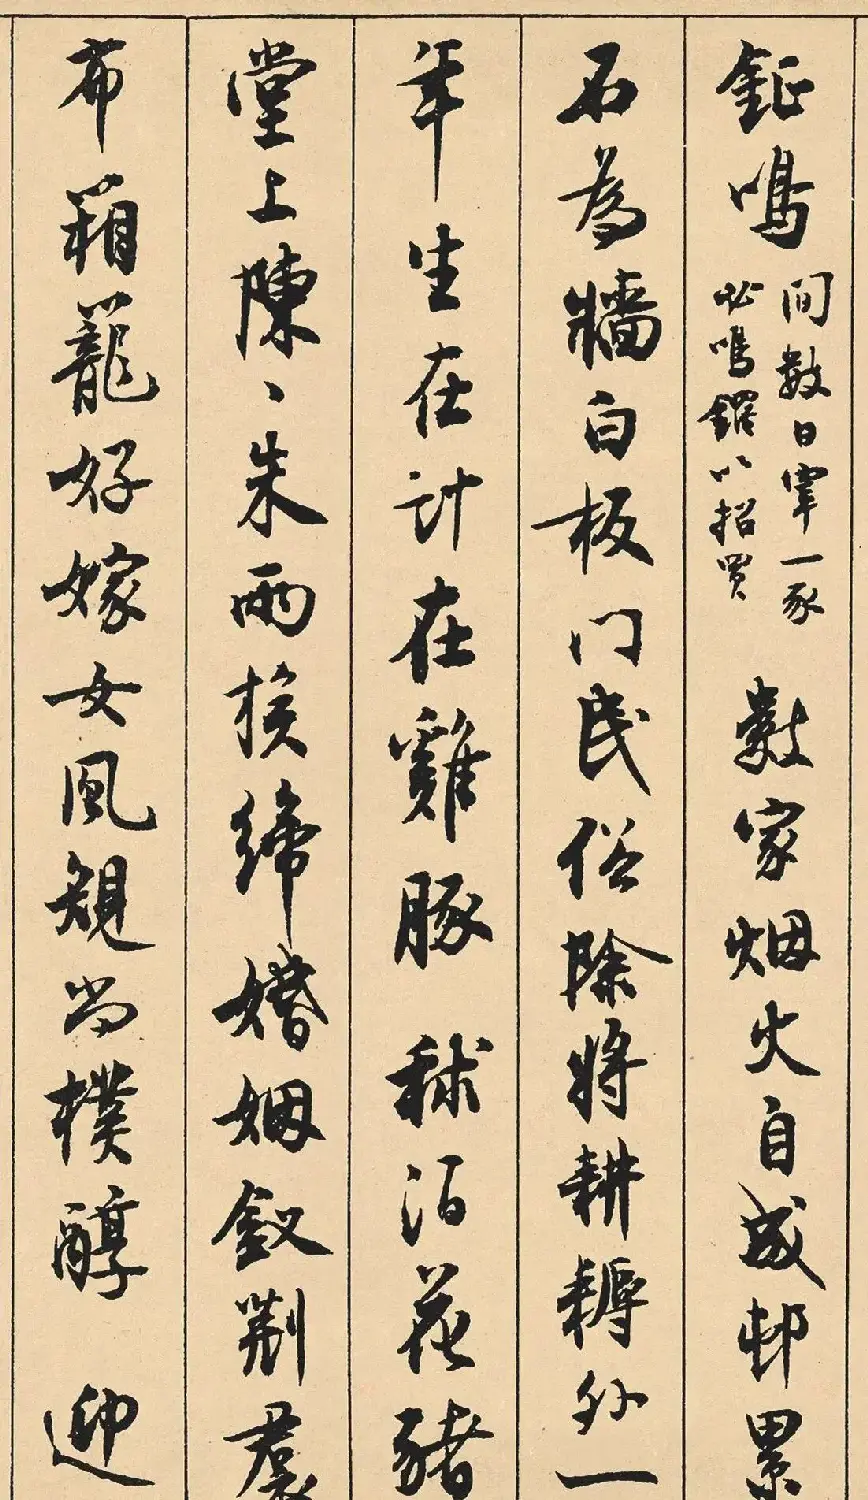 鉦鳴
间數日宰一豕
必鳴鑼以招買
數家烟火自成邨累
石為牆白板门民俗除將耕耨外一
年生在计在雞豚 秫酒花豬
堂上陳、朱兩族締婚姻釵荆裠
布箱籠好嫁女風規尚樸醇 迎